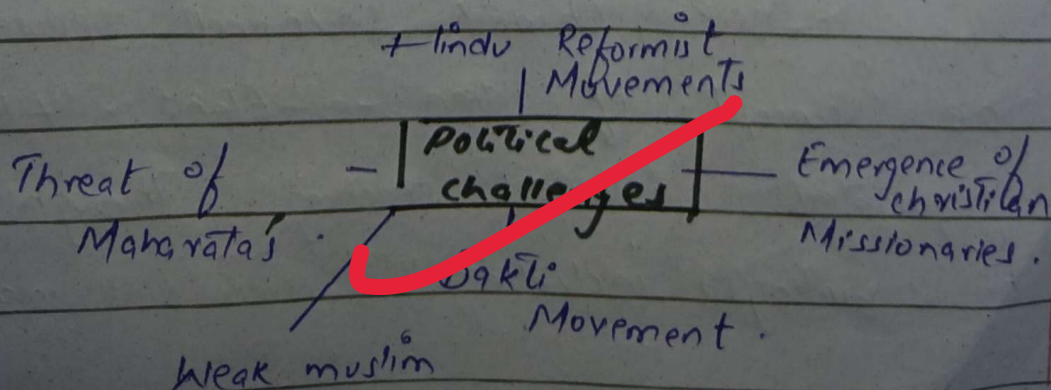 Hindu Reformist
Movements
Political
challenges
Threat of
Maharata's.
Emergence of
christian
Missionaries.
Bakti
Movement.
Weak muslim